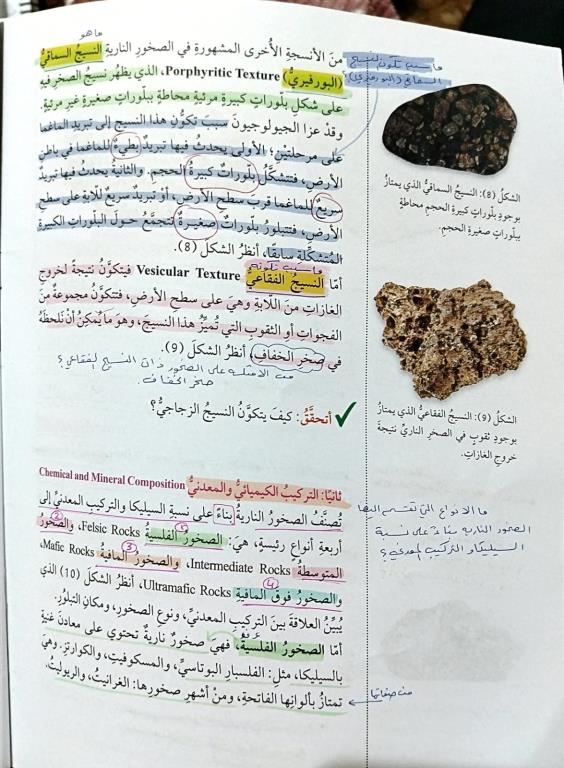 ما هو
من الأنسجةِ الأُخرى المشهورةِ في الصخورِ الناريةِ النسيجُ السماقيُّ
(البورفيري) Porphyritic Texture، الذي يظهرُ نسيجُ الصخرِ فيهِ
على شكلِ بلّوراتٍ كبيرةٍ مرئيةٍ محاطةٍ ببلّوراتٍ صغيرةٍ غيرِ مرئيةٍ.
وقدْ عزا الجيولوجيونَ سببَ تكوُّنِ هذا النسيجِ إلى تبريدِ الماغما
على مرحلتينِ؛ الأولى يحدثُ فيها تبريدٌ بطيءٌ للماغما في باطنِ
الأرضِ، فتتشكَّلُ بلّوراتٌ كبيرةُ الحجمِ. والثانيةُ يحدثُ فيها تبريدٌ
سريعٌ للماغما قربَ سطحِ الأرضِ، أوْ تبريدٌ سريعٌ للّابةِ على سطحِ
الأرضِ، فتتبلورُ بلّوراتٌ صغيرةٌ تتجمَّعُ حولَ البلّوراتِ الكبيرةِ
المتشكِّلةِ سابقًا، أنظرُ الشكلَ (8).
ما سبب تكونه
أمّا النسيجُ الفقاعيُّ Vesicular Texture فيتكوَّنُ نتيجةً لخروجِ
الغازاتِ منَ اللّابةِ وهيَ على سطحِ الأرضِ، فتتكوَّنُ مجموعةٌ منَ
الفجواتِ أوِ الثقوبِ التي تُميِّزُ هذا النسيجَ، وهوَ ما يُمكِنُ أنْ نلحظَهُ
في صخرِ الخفافِ، أنظرُ الشكلَ (9).
من الامثلة على الصخور ذات النسيج الفقاعي؟
صخر الخفاف.
أتحقَّقُ: كيفَ يتكوَّنُ النسيجُ الزجاجيُّ؟
ثانيًا: التركيبُ الكيميائيُّ والمعدنيُّ Chemical and Mineral Composition
تُصنَّفُ الصخورُ الناريةُ بناءً على نسبةِ السيليكا والتركيبِ المعدنيِّ إلى
أربعةِ أنواعٍ رئيسةٍ، هيَ: الصخورُ الفلسيةُ Felsic Rocks، والصخورُ
المتوسطةُ Intermediate Rocks، والصخورُ المافيةُ Mafic Rocks،
والصخورُ فوقَ المافيةِ Ultramafic Rocks، أنظرُ الشكلَ (10) الذي
يُبيِّنُ العلاقةَ بينَ التركيبِ المعدنيِّ، ونوعِ الصخورِ، ومكانِ التبلوُرِ.
أمّا الصخورُ الفلسيةُ، فهيَ صخورٌ ناريةٌ تحتوي على معادنَ غنيةٍ
بالسيليكا، مثلِ: الفلسبارِ البوتاسيِّ، والمسكوفيتِ، والكوارتزِ. وهيَ
تمتازُ بألوانِها الفاتحةِ، ومنْ أشهرِ صخورِها: الغرانيتُ، والريوليتُ.
ما سبب تكون النسيج
السماقي (البورفيري)؟
الشكلُ (8): النسيجُ السماقيُّ الذي يمتازُ
بوجودِ بلّوراتٍ كبيرةِ الحجمِ محاطةٍ
ببلّوراتٍ صغيرةِ الحجمِ.
الشكلُ (9): النسيجُ الفقاعيُّ الذي يمتازُ
بوجودِ ثقوبٍ في الصخرِ الناريِّ نتيجةَ
خروجِ الغازاتِ.
ما الانواع التي تقسم اليها
الصخور النارية بناءً على نسبة
السيليكا و التركيب المعدني؟
من صفاتها